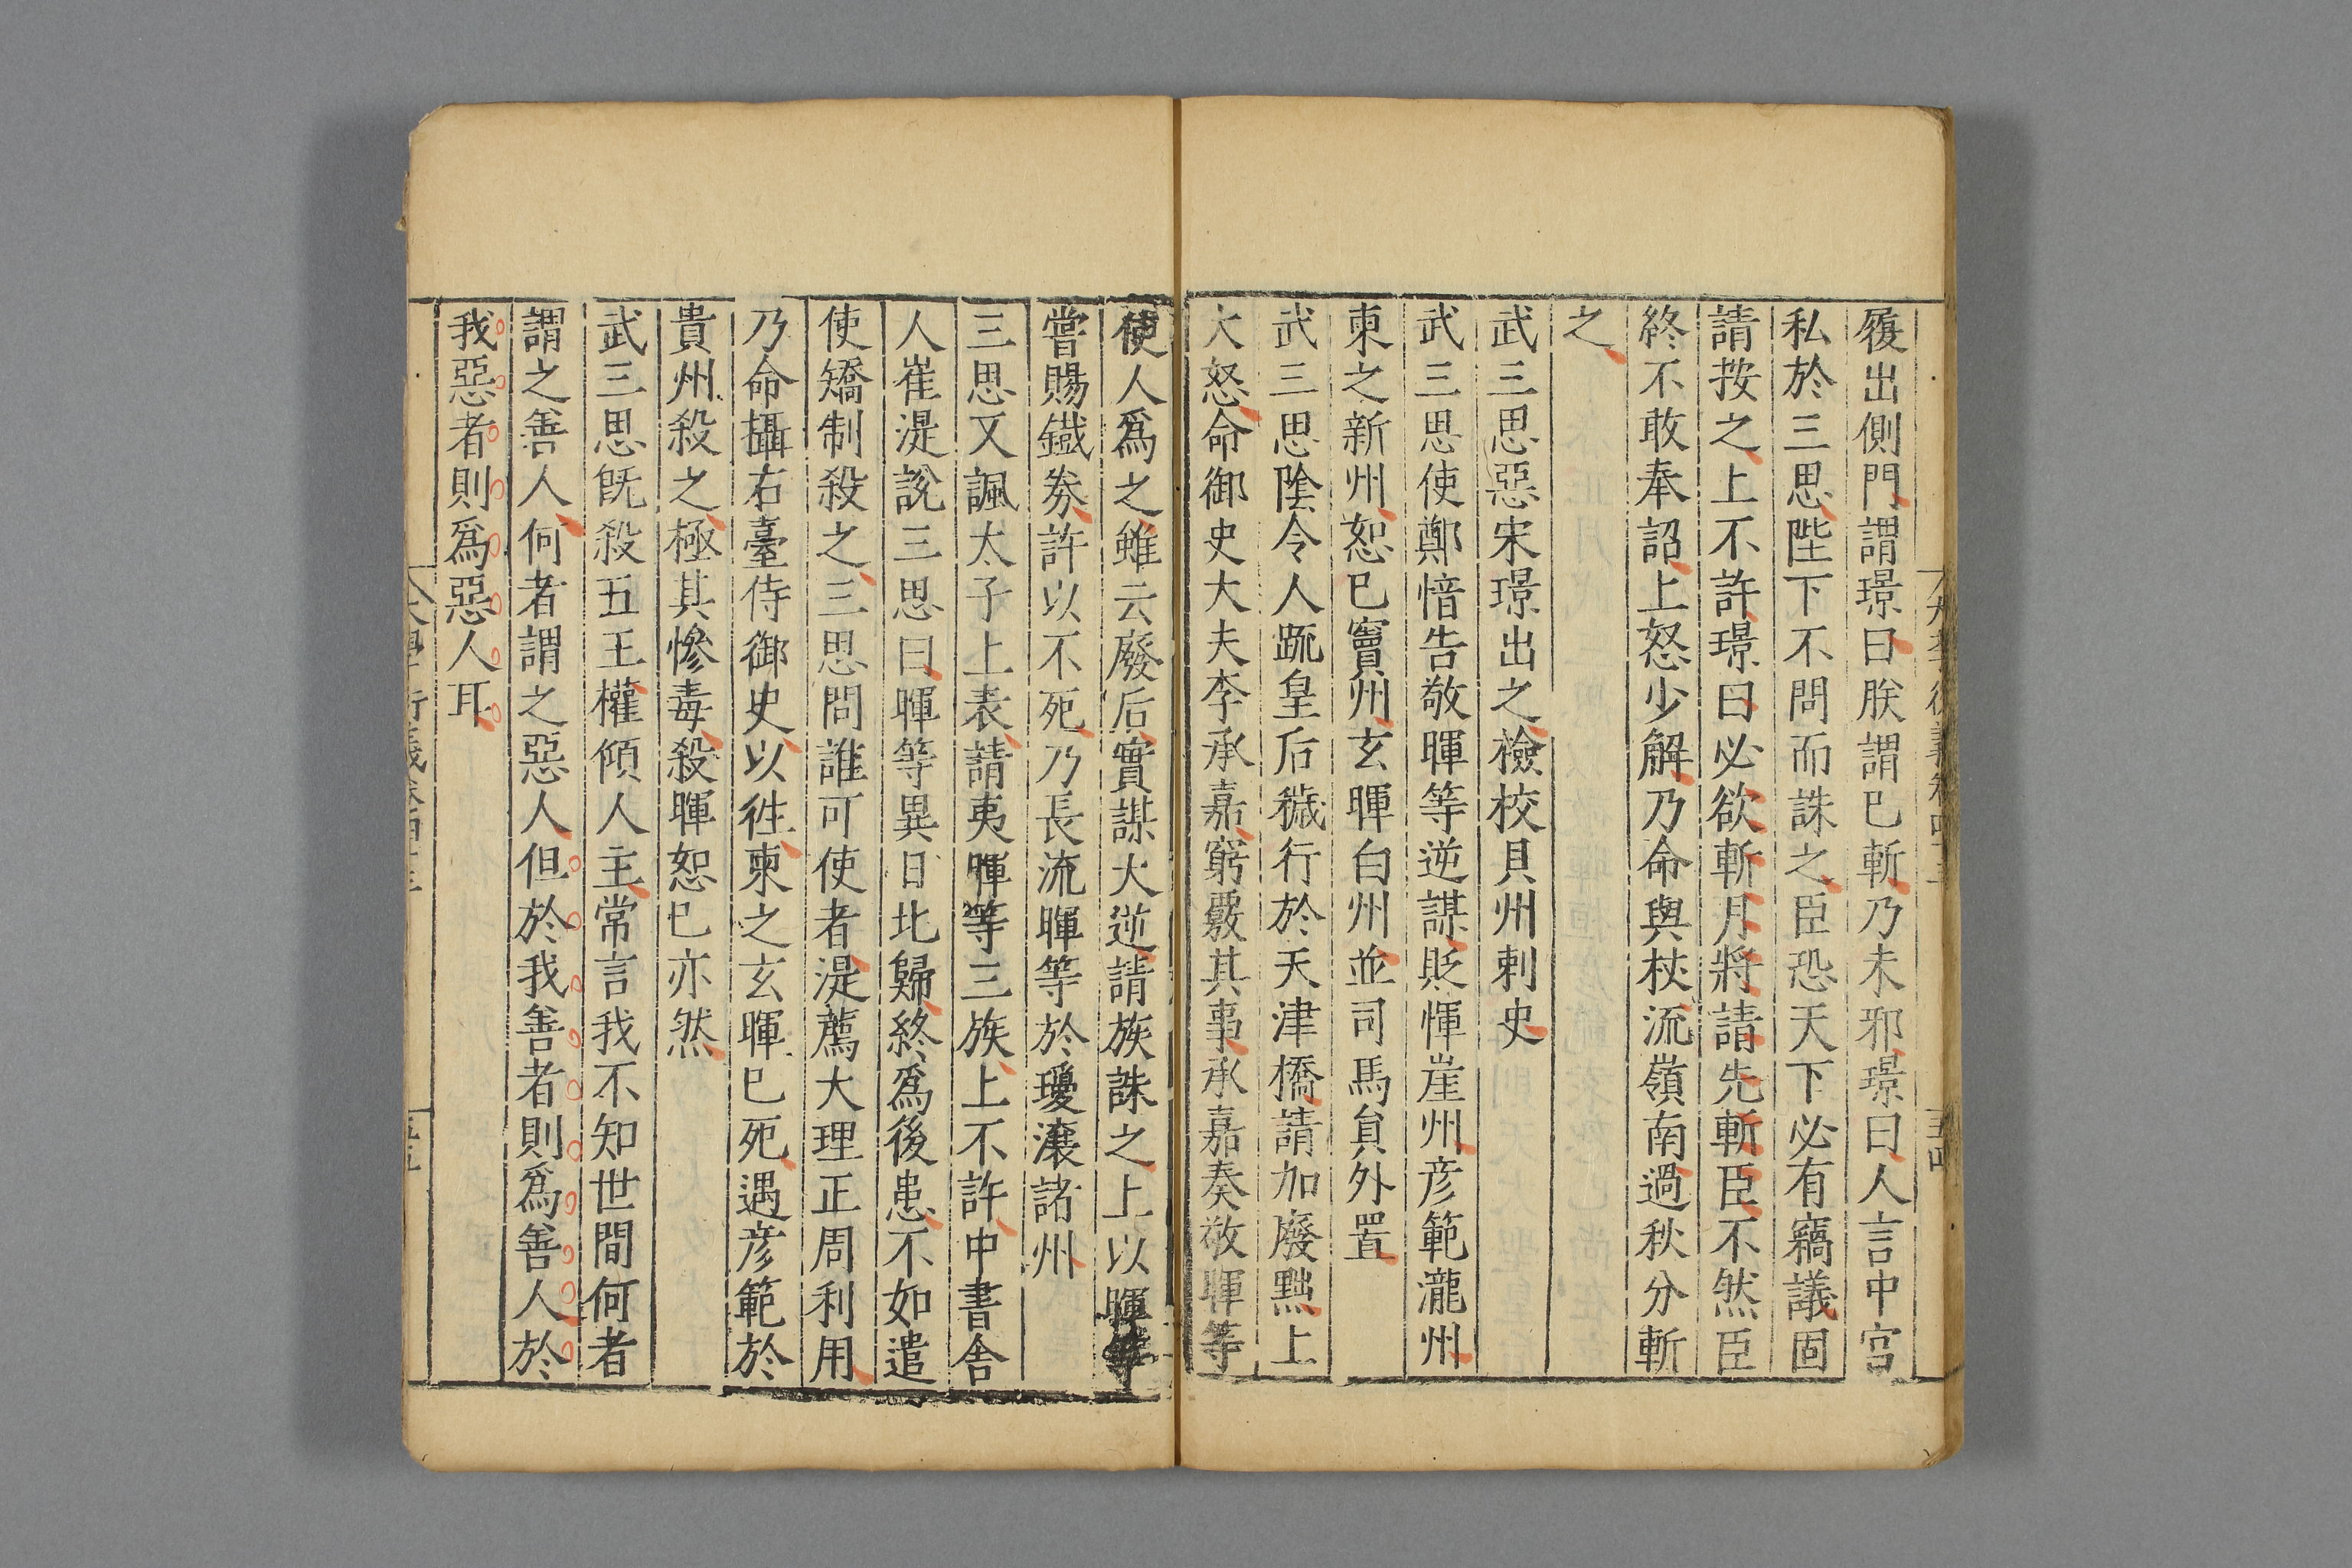 履出側門謂璟曰朕謂已斬乃未邪璟曰人言中宮
私於三思陛下不問而誅之臣恐天下必有竊議固
請按之上不許璟曰必欲斬月將請先斬臣不然臣
終不敢奉詔上怒少解乃命與杖流嶺南過秋分斬
之
武三思惡宋璟出之檢校貝州刺史
武三思使鄭愔告敬暉等逆謀貶惲崖州彦範瀧州
柬之新州恕已竇州玄暉白州並司馬貟外置
武三思隂令人䟽皇后穢行於天津橋請加廢黜上
大怒命御史大夫李承嘉窮覈其事承嘉奏敬暉等
使人爲之雖云廢后實謀大逆請族誅之上以暉等
嘗賜鐵券許以不死乃長流暉等於瓊瀼諸州
三思又諷太子上表請夷暉等三族上不許中書舎
人崔湜說三思曰暉等異日北歸終爲後患不如遣
使矯制殺之三思問誰可使者湜薦大理正周利用
乃命攝右臺侍御史以徃柬之玄暉已死遇彦範於
貴州殺之極其慘毒殺暉恕已亦然
武三思旣殺五王權傾人主常言我不知世間何者
謂之善人何者謂之惡人但於我善者則爲善人於
我惡者則爲惡人耳